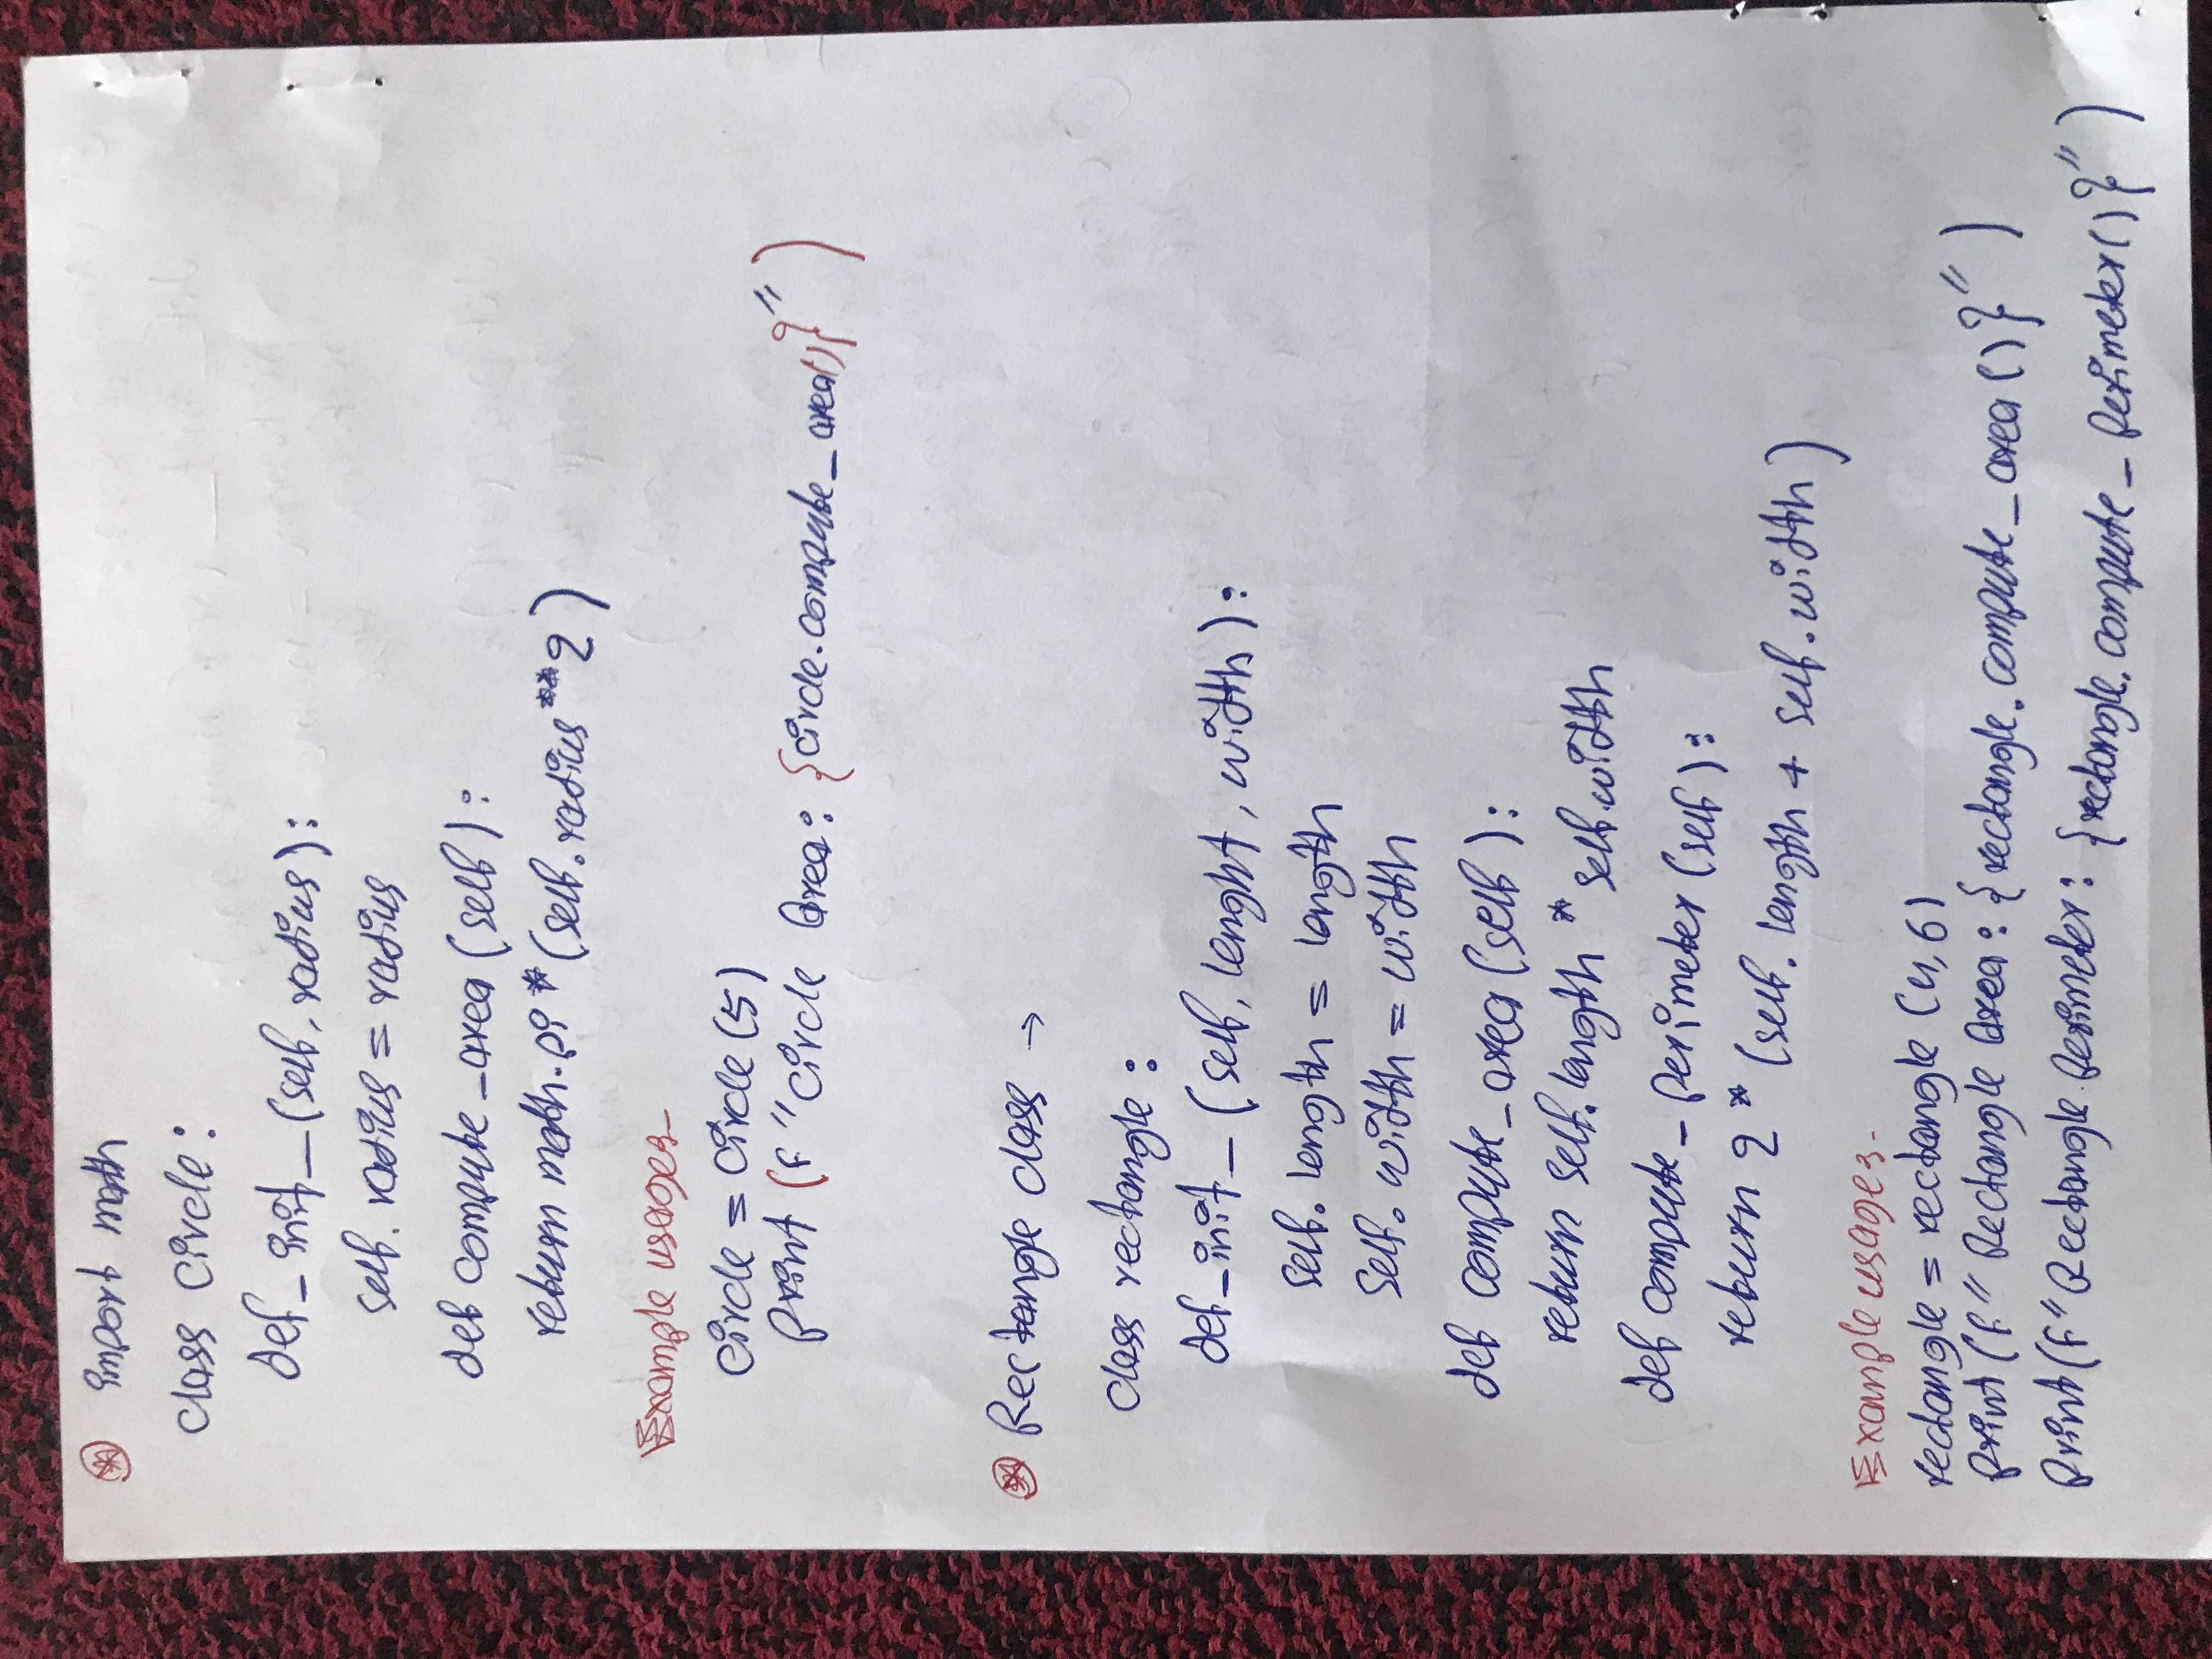 import math
class Circle:
def_init_(self, radius):
self.radius = radius
def compute_area(self):
return math.pi*(self.radius**2)
Example usages-
Circle = Circle(5)
print (f"Circle Area: {circle.compute_area()}")
Rectangle class →
class rectangle:
def_init_(self, lenght, width):
self.length = length
self.width = width
def compute_area(self):
return self.length * self.width
def compute_perimeter(self):
return 2*(self.length + self.width)
Example usages-
rectangle = rectangle (4,6)
print(f"Rectangle Area: {rectangle.compute_area()}")
print(f"Rectangle Perimeter: {rectangle.compute_perimeter()}")